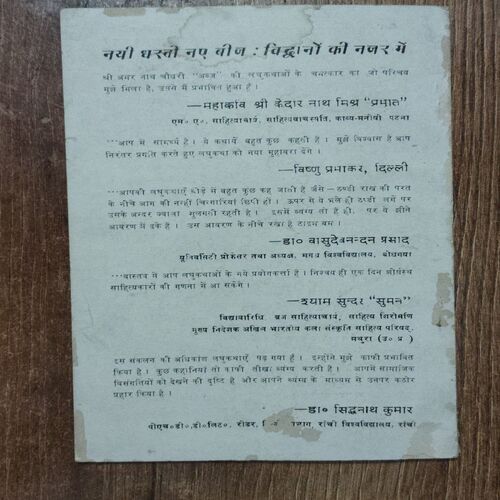 नयी धरती नए बीज : विद्वानों की नजर में
श्री अमर नाथ चौधरी "अब्ज" की लघुकथाओं के चमत्कार का जो परिचय
मुझे मिला है, उससे मैं प्रभावित हुआ हूँ ।
—महाकवि श्री केदार नाथ मिश्र "प्रभात"
एम० ए०, साहित्याचार्य, साहित्यवाचस्पति, काव्य-मनीषी पटना
···आप में सामर्थ्य है । ये कथायें बहुत कुछ कहती हैं । मुझे विश्वास है आप
निरंतर प्रगति करते हुए लघुकथा को नया मुहावरा देंगे ।
—विष्णु प्रभाकर, दिल्ली
···आपकी लघुकथाएँ थोड़े में बहुत कुछ कह जाती हैं जैसे — ठण्डी राख की परत
के नीचे आग की नन्हीं चिनगारियाँ छिपी हों । ऊपर से ये भले ही ठण्डी लगें पर
उसके अन्दर ज्वाला सुलगती रहती है । इसमें व्यंग्य तो हैं ही, पर ये झीने
आवरण में ढके हैं । उस आवरण के नीचे रखा है टाइम बम ।
—डा० वासुदेवनन्दन प्रसाद
यूनिवर्सिटी प्रोफेसर तथा अध्यक्ष, मगध विश्वविद्यालय, बोधगया
···वास्तव में आप लघुकथाओं के नये प्रयोगकर्त्ता हैं । निश्चय ही एक दिन शीर्षस्थ
साहित्यकारों की गणना में आ सकेंगे ।
—श्याम सुन्दर "सुमन"
विद्यावारिधि ब्रज साहित्याचार्य, साहित्य शिरोमणि
मुख्य निदेशक अखिल भारतीय कला संस्कृति साहित्य परिषद्,
मथुरा (उ० प्र०)
इस संकलन की अधिकांश लघुकथाएँ पढ़ गया हूँ । इन्होंने मुझे काफी प्रभावित
किया है । कुछ कहानियाँ तो काफी तीखा व्यंग्य करती हैं । आपमें सामाजिक
विसंगतियों को देखने की दृष्टि है और आपने व्यंग्य के माध्यम से उनपर कठोर
प्रहार किया है ।
—डा० सिद्धनाथ कुमार
पीएच०डी०,डी०लिट०, रीडर, रांची विश्वविद्यालय, रांची